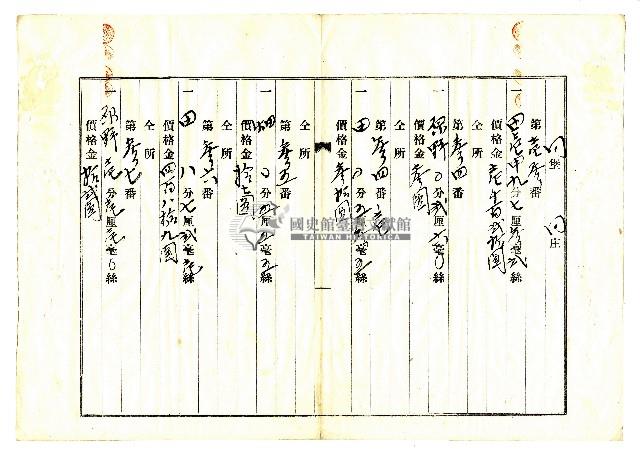 同堡 同庄
第壱参番
一田壱甲九分七厘参毫弐絲
價格金壱千百弐拾圓
仝所
第参四番
一原野〇分弐厘六毫〇絲
價格金参圓
仝所
第参四番
一田〇分五厘
價格金参拾圓
仝所
第参五番
一畑〇分五厘
價格金拾五圓
仝所
第参六番
一田八分七厘弐毫壱絲
價格金四百八拾九圓
仝所
第参七番
一原野壱分壱厘壱毫〇絲
價格金拾弐圓
國史館臺灣文獻館
TAIWAN HISTORICA